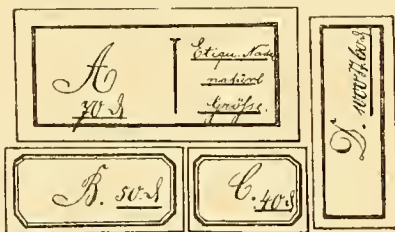 A
70 ₰
Etiqu.
natürl
Größe.
B. 50 ₰
C. 40 ₰
D. 1000